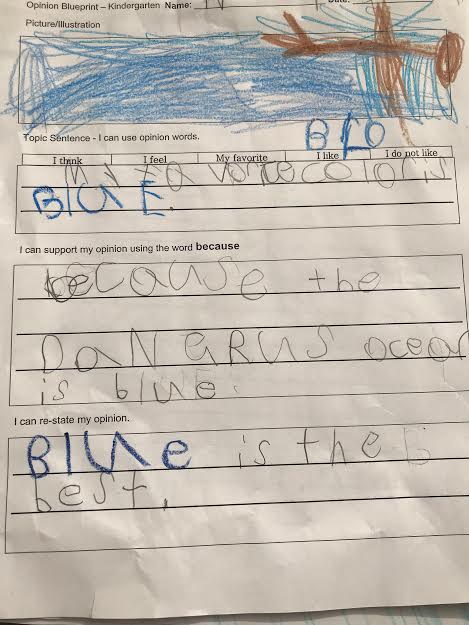 Opinion Blueprint – Kindergarten Name:
Picture/Illustration
Topic Sentence - I can use opinion words.
BLO
I think I feel My favorite I like I do not like
My favorite color is
BlUE.
I can support my opinion using the word because
because the
DaNGRUS ocean
is blue.
I can re-state my opinion.
Blue is the B
best.